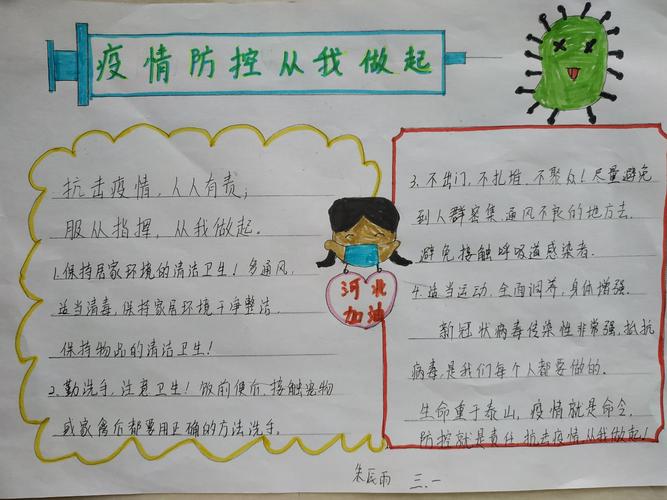 疫情防控从我做起
抗击疫情,人人有责;
服从指挥,从我做起.
1.保持居家环境的清洁卫生!多通风,
适当消毒,保持家居环境干净整洁.
保持物品的清洁卫生!
2.勤洗手,注意卫生!饭前便后,接触宠物
或家禽后都要用正确的方法洗手.
河北
加油
3.不出门,不扎堆,不聚众!尽量避免
到人群密集通风不良的地方去.
避免接触呼吸道感染者.
4.适当运动,全面调养,身体增强.
新冠状病毒传染性非常强,抵抗
病毒,是我们每个人都要做的.
生命重于泰山,疫情就是命令,
防控就是责任,抗击疫情,从我做起!
朱辰雨 三.一